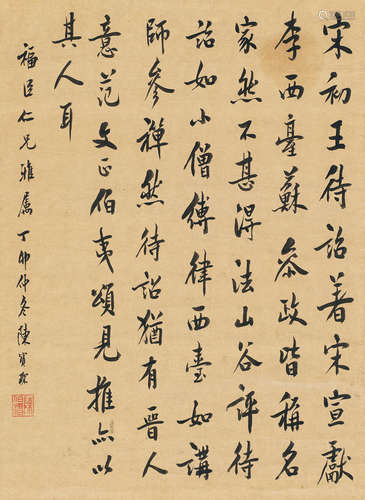 宋初王待詔著宋宣獻
李西臺蘇參政皆稱名
家然不甚得法山谷評待
詔如小僧縛律西臺如講
師參禪然待詔猶有晉人
意范文正伯夷頌見推亦以
其人耳
福臣仁兄雅屬 丁卯仲冬陳寶琛